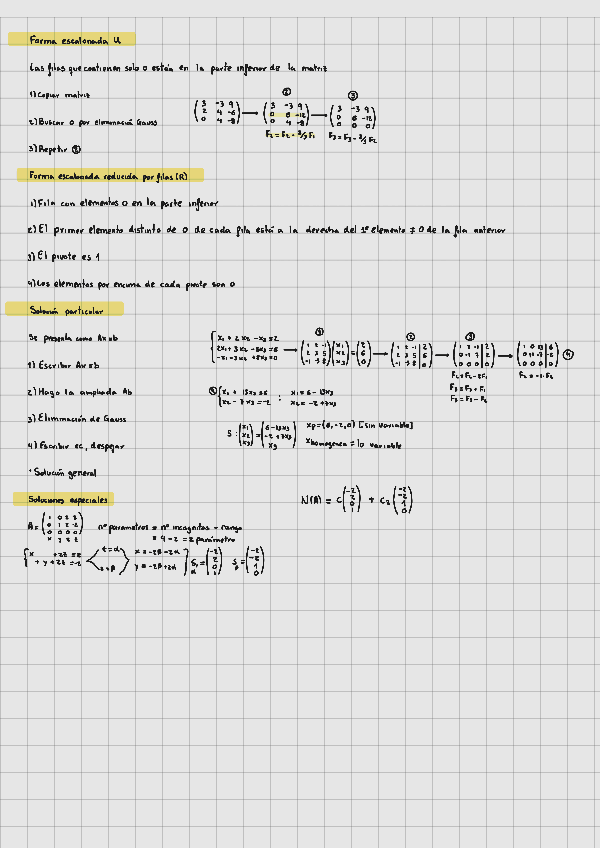 Forma escalonada U
Las filas que contienen solo 0 están en la parte inferior de la matriz
1) Copiar matriz
2) Buscar 0 por eliminación Gauss
3) Repetir ②
② ③
( 3 -3 9 ; 2 4 -6 ; 0 4 -8 ) → ( 3 -3 9 ; 0 6 -12 ; 0 4 -8 ) → ( 3 -3 9 ; 0 6 -12 ; 0 0 0 )
F₂ = F₂ - 2/3 F₁ F₃ = F₃ - 2/3 F₂
Forma escalonada reducida por filas (R)
1) Fila con elementos 0 en la parte inferior
2) El primer elemento distinto de 0 de cada fila está a la derecha del 1º elemento ≠ 0 de la fila anterior
3) El pivote es 1
4) Los elementos por encima de cada pivote son 0
Solución particular
Se presenta como Ax=b
1) Escribir Ax=b
2) Hago la ampliada Ab
3) Eliminación de Gauss
4) Escribir ec, despejar
* Solución general
① ② ③
{ x₁ + 2x₂ - x₃ = 2 ; 2x₁ + 3x₂ + 5x₃ = 6 ; -x₁ - 3x₂ + 8x₃ = 0 → ( 1 2 -1 ; 2 3 5 ; -1 -3 8 ) ( x₁ ; x₂ ; x₃ ) = ( 2 ; 6 ; 0 ) → ( 1 2 -1 | 2 ; 2 3 5 | 6 ; -1 -3 8 | 0 ) → ( 1 2 -1 | 2 ; 0 -1 7 | 2 ; 0 0 0 | 0 ) → ( 1 0 13 | 6 ; 0 1 -7 | -2 ; 0 0 0 | 0 ) ④
F₂ = F₂ - 2F₁ F₂ = -1·F₂
F₃ = F₃ + F₁
F₃ = F₃ - F₂
{ x₁ + 13x₃ = 6 ; x₂ - 7x₃ = -2 : x₁ = 6 - 13x₃ ; x₂ = -2 + 7x₃
S : ( x₁ ; x₂ ; x₃ ) = ( 6 - 13x₃ ; -2 + 7x₃ ; x₃ ) xp = (6, -2, 0) [sin variable]
xhomogenea = lo variable
Soluciones especiales
A = ( 1 0 2 2 ; 0 1 2 -2 ; 0 0 0 0 ; x y z t )
nº parametros = nº incognitas - rango
= 4 - 2 = 2 parámetro
N(A) = C ( -2 ; 2 ; 0 ; 1 ) + C₂ ( -2 ; -2 ; 1 ; 0 )
t = α x = -2β - 2α
z = β y = -2β + 2α
S₁ = ( -2 ; 2 ; 0 ; 1 ) S = ( -2 ; -2 ; 1 ; 0 )